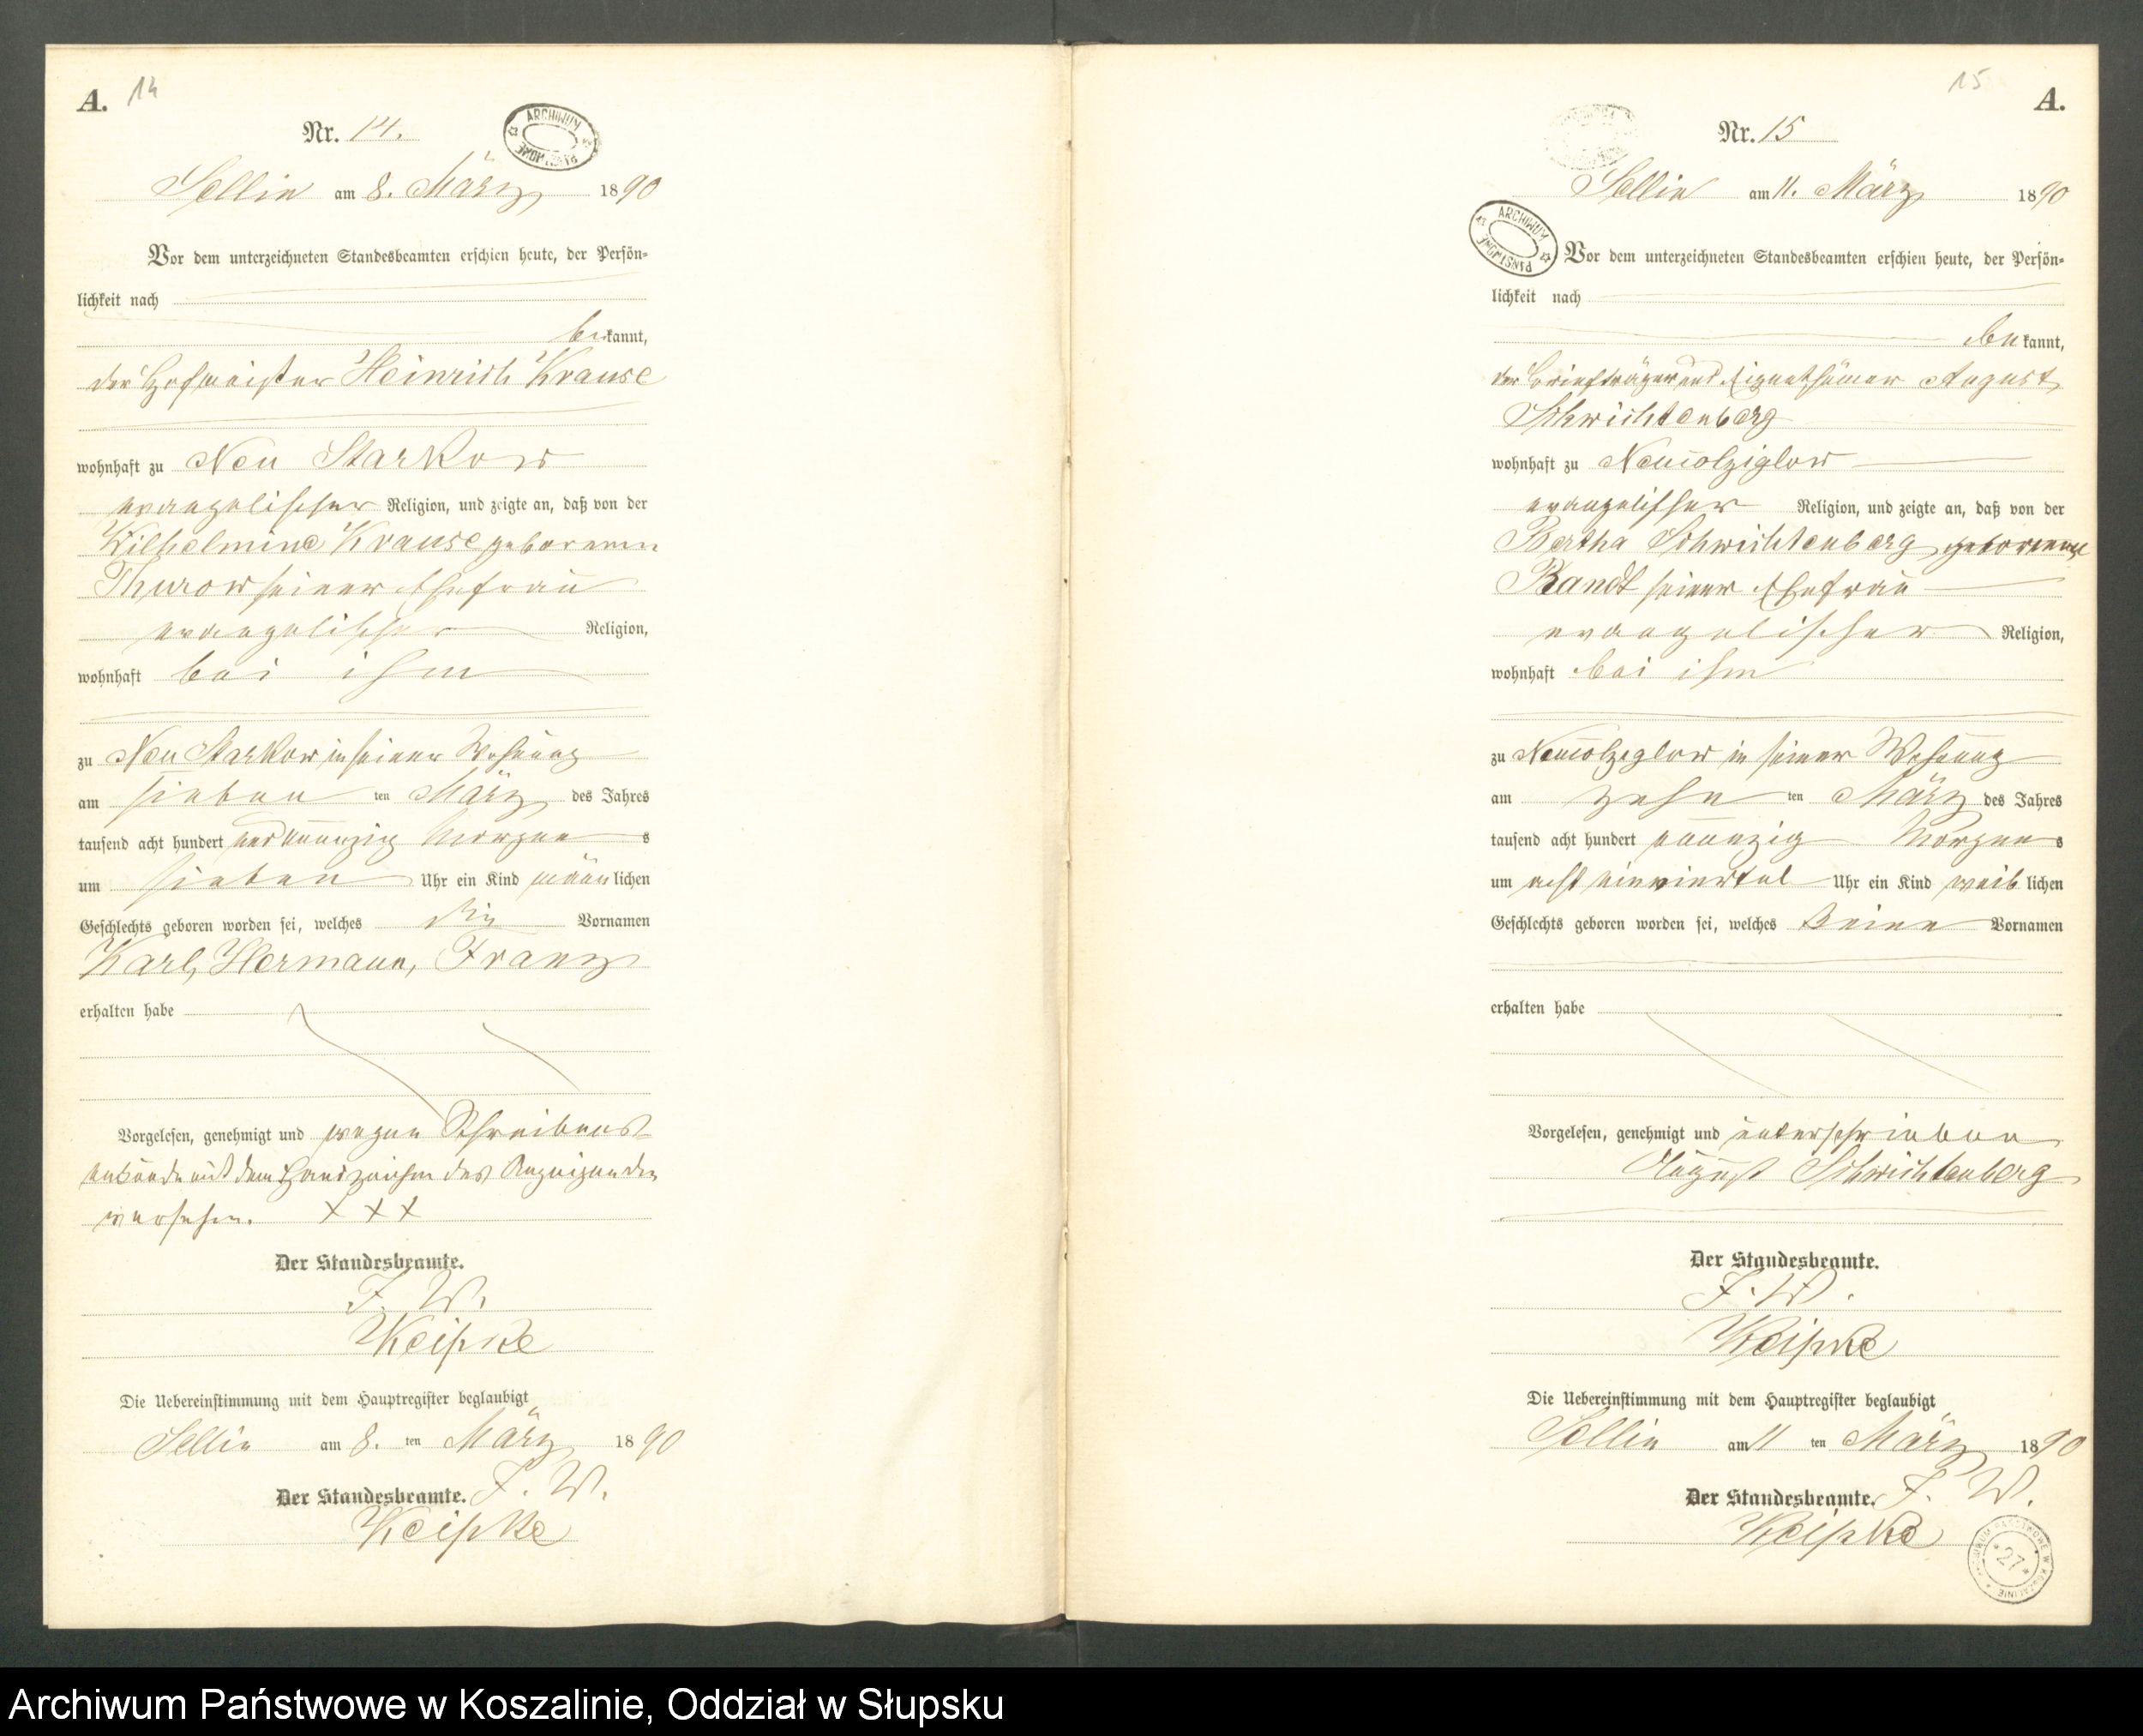 A. 14
Nr. 14.
ARCHIWUM PAŃSTWOWE
Sellin am 8. März 1890
Vor dem unterzeichneten Standesbeamten erschien heute, der Persön-
lichkeit nach
bekannt,
der Hofmeister Heinrich Krause
wohnhaft zu Neu Starkow
evangelischer Religion, und zeigte an, daß von der
Wilhelmine Krause geborenen
Thurow seiner Ehefrau
evangelischer Religion,
wohnhaft bei ihm
zu Neu Starkow in seiner Wohnung
am sieben ten März des Jahres
tausend acht hundert und neunzig Morgens
um sieben Uhr ein Kind männlichen
Geschlechts geboren worden sei, welches die Vornamen
Karl, Hermann, Franz
erhalten habe
Vorgelesen, genehmigt und wegen Schreibens
unkunde mit dem Handzeichen des Anzeigenden
versehen. XXX
Der Standesbeamte.
J. W.
Keipke
Die Uebereinstimmung mit dem Hauptregister beglaubigt
Sellin am 8. ten März 1890
Der Standesbeamte. J. W.
Keipke
15 A.
Nr. 15
Sellin am 11. März 1890
ARCHIWUM PAŃSTWOWE
Vor dem unterzeichneten Standesbeamten erschien heute, der Persön-
lichkeit nach
bekannt,
der Briefträger und Eigenthümer August
Schwichtenberg
wohnhaft zu
evangelischer Religion, und zeigte an, daß von der
Bertha Schwichtenberg geborenen
Bandt seiner Ehefrau
evangelischer Religion,
wohnhaft bei ihm
zu in seiner Wohnung
am zehn ten März des Jahres
tausend acht hundert neunzig Morgens
um acht einviertel Uhr ein Kind weiblichen
Geschlechts geboren worden sei, welches keine Vornamen
erhalten habe
Vorgelesen, genehmigt und unterschrieben
August Schwichtenberg
Der Standesbeamte.
J. W.
Keipke
Die Uebereinstimmung mit dem Hauptregister beglaubigt
Sellin am 11 ten März 1890
Der Standesbeamte. J. W.
Keipke
ARCHIWUM PAŃSTWOWE W KOSZALINIE * 27 *
Archiwum Państwowe w Koszalinie, Oddział w Słupsku